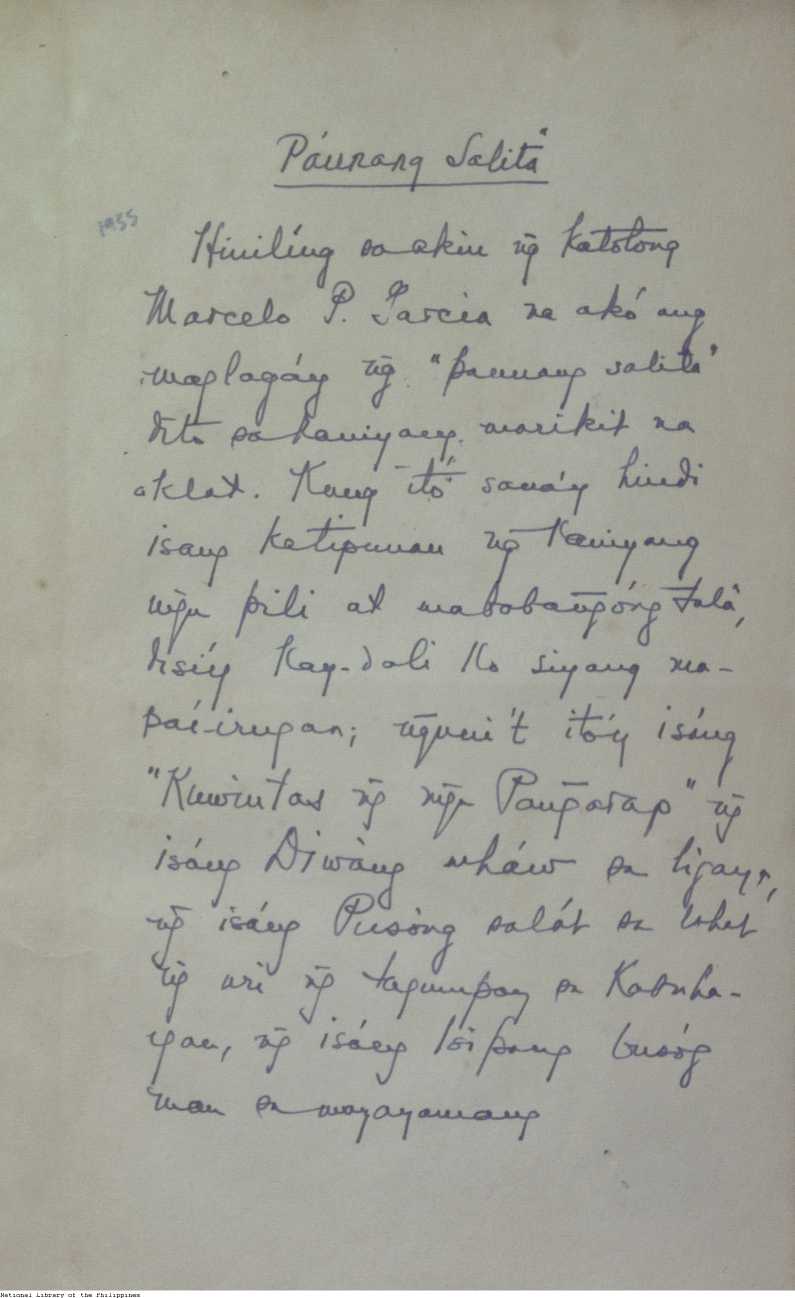 Páunang Salitâ
1935
Hinilíng sa akin n͠g katotong
Marcelo P. Garcia na akó ang
maglagáy n͠g "paunang salitâ"
dito sa kaniyang marikit na
aklat. Kung itó sanáy hindi
isang katipunan n͠g kaniyang
mg̃a pili at mababan͠góng talâ,
disíy kay-dali ko siyang ma-
paí-irugan; n͠guni't itó'y isáng
"Kuwintas n͠g mg̃a Pan͠garap" n͠g
isáng Diwàng uháw sa ligaya,
n͠g isáng Pusòng salát sa lahat
n͠g uri n͠g tagumpay sa Kabuha-
yan, n͠g isáng Isipang busóg
man sa mayayamang
National Library of the Philippines